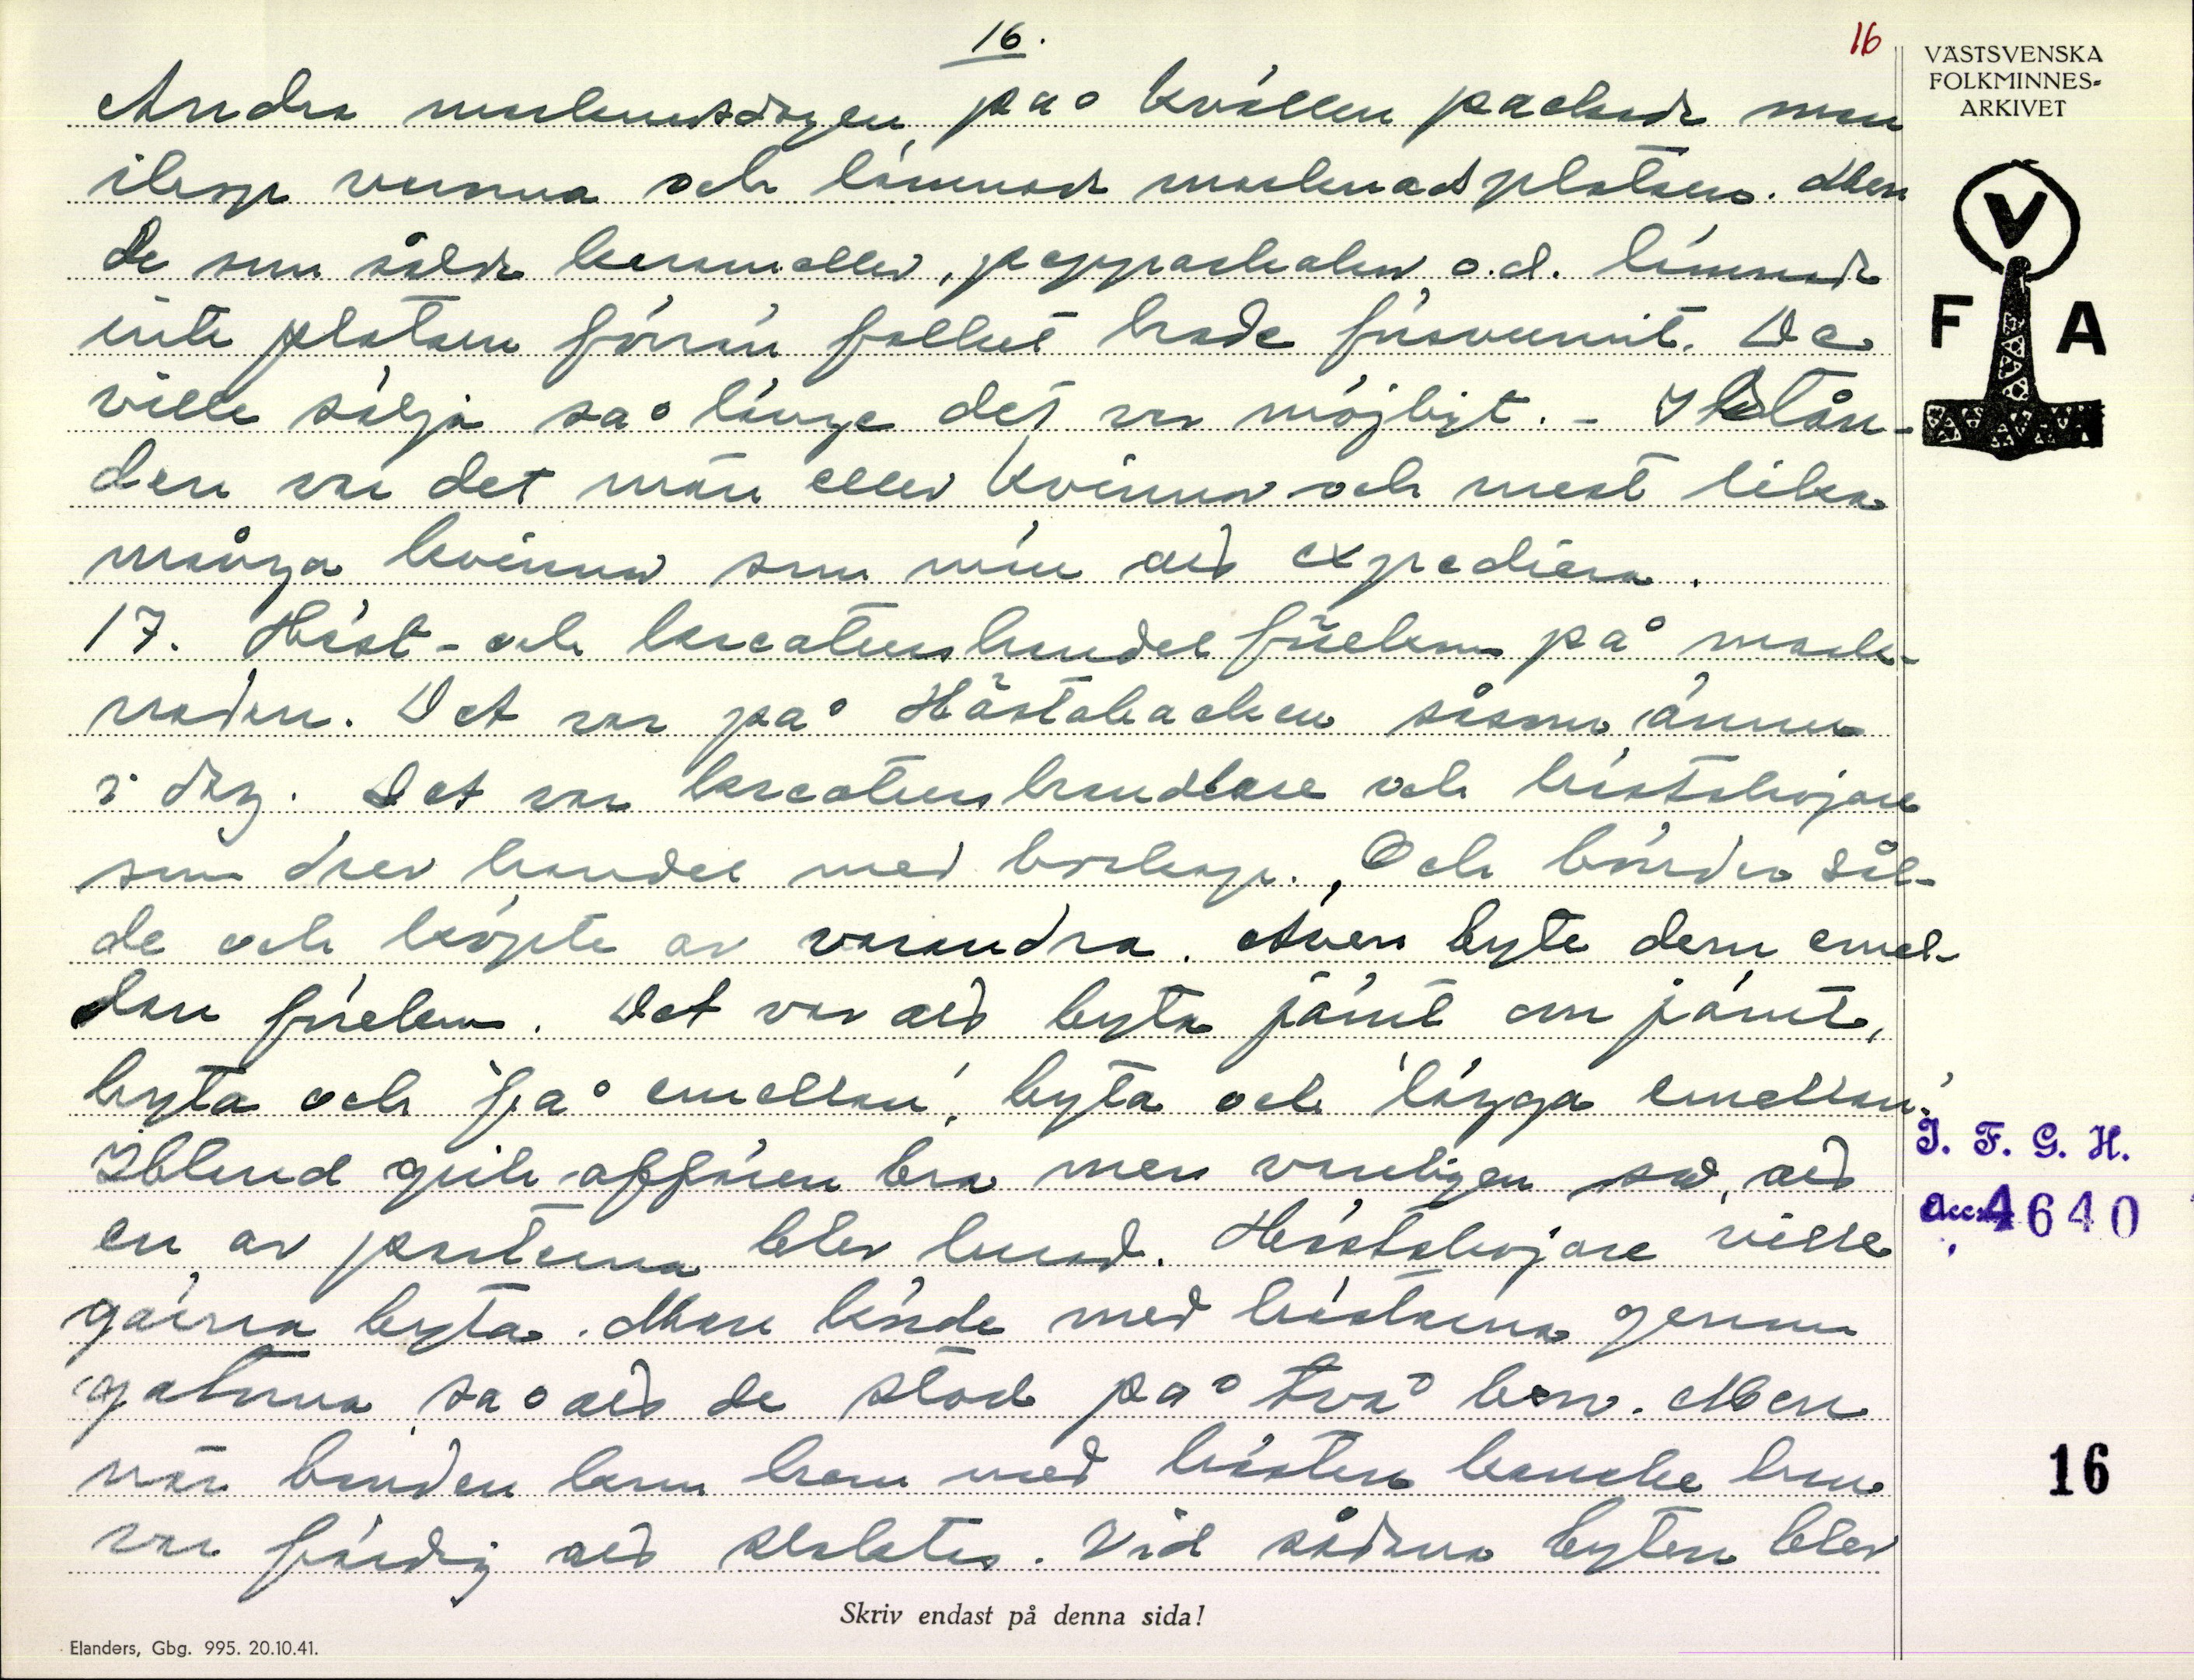 16.
16
VÄSTSVENSKA
FOLKMINNES-
ARKIVET
V
F A
Andra marknadsdagen på kvällen packade man
ihop varorna och lämnade marknadsplatsen. Men
de som sålde karameller, pepparkakor o.d. lämnade
inte platsen förrän folket hade försvunnit. De
ville sälja så länge det var möjligt. - I stån-
den var det män eller kvinnor och mest lika
många kvinnor som män att expediera.
17. Häst- och kreaturshandel förekom på mark-
naden. Det var på Hästabacken såsom ännu
i dag. Det var kreaturshandlare och hästskojare
som drev handel med boskap. Och bönder sål-
de och köpte av varandra. Även byte dem emel-
lan förekom. Det var att byta jämt om jämt,
byta och 'få emellan', byta och 'lägga emellan'.
Ibland gick affären bra men vanligen så, att
en av parterna blev lurad. Hästskojare ville
gärna byta. Man körde med hästarna genom
gatorna så att de stod på två ben. Men
när bonden kom hem med hästen kanske han
var färdig att slaktas. Vid sådana byten blev
I. F. G. H.
Acc. 4640
16
Skriv endast på denna sida!
Elanders, Gbg. 995. 20.10.41.